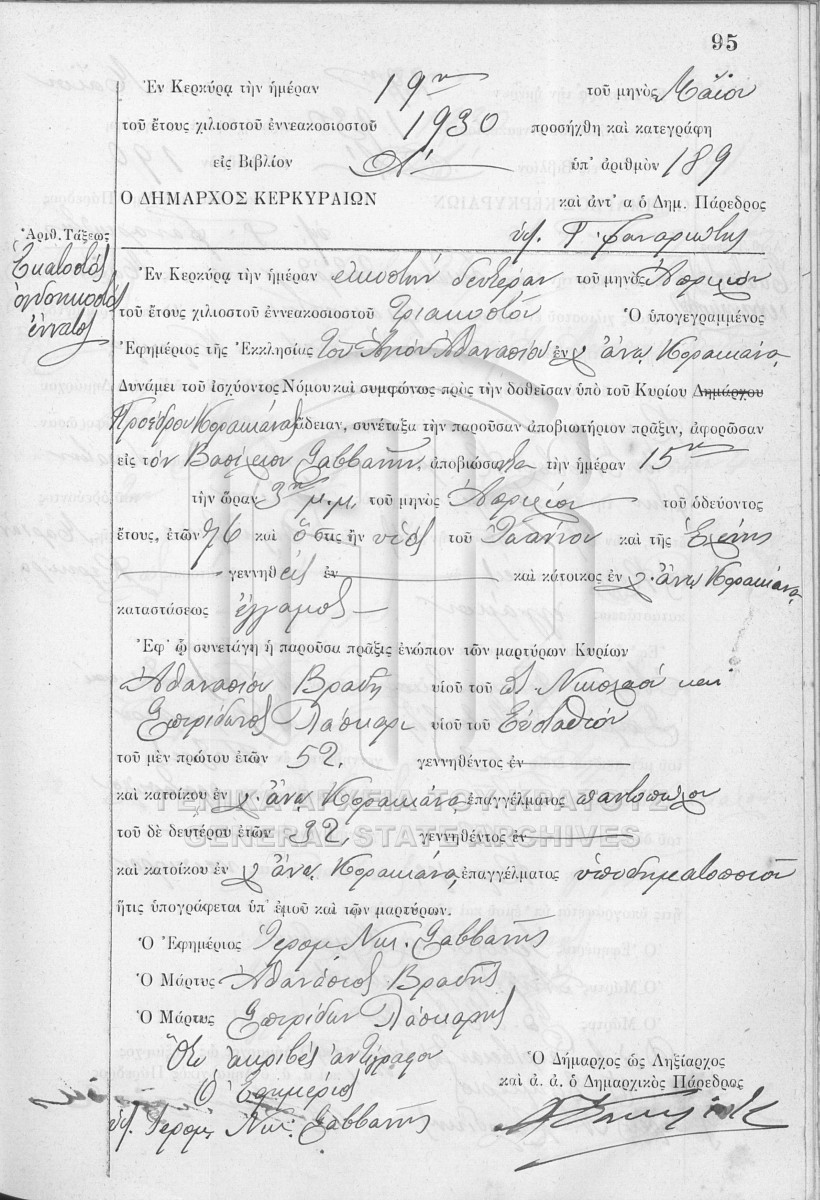 95
Ἐν Κερκύρᾳ τὴν ἡμέραν 19ην τοῦ μηνὸς Μαΐου
τοῦ ἔτους χιλιοστοῦ ἐννεακοσιοστοῦ 1930 προσήχθη καὶ κατεγράφη
εἰς Βιβλίον Α' ὑπ' ἀριθμὸν 189
Ο ΔΗΜΑΡΧΟΣ ΚΕΡΚΥΡΑΙΩΝ καὶ ἀντ' α ὁ Δημ. Πάρεδρος
Ἀριθ. Τάξεως
Ἑκατοστὸς
ὀγδοηκοστὸς
ἔννατος
Ἐν Κερκύρᾳ τὴν ἡμέραν εἰκοστὴν δευτέραν τοῦ μηνὸς Ἀπριλίου
τοῦ ἔτους χιλιοστοῦ ἐννεακοσιοστοῦ τριακοστοῦ Ὁ ὑπογεγραμμένος
Ἐφημέριος τῆς Ἐκκλησίας τοῦ Ἁγίου Ἀθανασίου ἐν χ. Ἄνω Κορακιάνα
Δυνάμει τοῦ ἰσχύοντος Νόμου καὶ συμφώνως πρὸς τὴν δοθεῖσαν ὑπὸ τοῦ Κυρίου Δημάρχου
Προέδρου Κορακιάνας ἄδειαν, συνέταξα τὴν παροῦσαν ἀποβιωτήριον πρᾶξιν, ἀφορῶσαν
εἰς τὸν Βασίλειον Σαββανῆν ἀποβιώσαντα τὴν ἡμέραν 15ην
τὴν ὥραν 3ην μ.μ. τοῦ μηνὸς Ἀπριλίου τοῦ ὁδεύοντος
ἔτους, ἐτῶν 76 καὶ ὅστις ἦν υἱὸς τοῦ Ἰωάννου καὶ τῆς Ἑλένης
γεννηθεὶς ἐν καὶ κάτοικος ἐν χ. Ἄνω Κορακιάνα
καταστάσεως ἔγγαμος
Ἐφ' ᾧ συνετάγη ἡ παροῦσα πρᾶξις ἐνώπιον τῶν μαρτύρων Κυρίων
Ἀθανασίου Βραδῆ υἱοῦ τοῦ Νικολάου και
Σπυρίδωνος Λάσκαρι υἱοῦ τοῦ Εὐσταθίου
τοῦ μὲν πρώτου ἐτῶν 52, γεννηθέντος ἐν
καὶ κατοίκου ἐν χ. Ἄνω Κορακιάνα ἐπαγγέλματος παντοπώλου
ΓΕΝΙΚΑ ΑΡΧΕΙΑ ΤΟΥ ΚΡΑΤΟΥΣ
τοῦ δὲ δευτέρου ἐτῶν 32, γεννηθέντος ἐν
GENERAL STATE ARCHIVES
καὶ κατοίκου ἐν χ. Ἄνω Κορακιάνα ἐπαγγέλματος ὑποδηματοποιοῦ
ἥτις ὑπογράφεται ὑπ' ἐμοῦ καὶ τῶν μαρτύρων.
Ὁ Ἐφημέριος Ἱερομ. Νικ. Σαββανῆς
Ὁ Μάρτυς Ἀθανάσιος Βραδῆς
Ὁ Μάρτυς Σπυρίδων Λάσκαρης
Ὅτι ἀκριβὲς ἀντίγραφον
Ὁ Ἐφημέριος
ὑπ. Ἱερομ. Νικ. Σαββανῆς
Ὁ Δήμαρχος ὡς Ληξίαρχος
καὶ ἀ. ἀ. ὁ Δημαρχικὸς Πάρεδρος